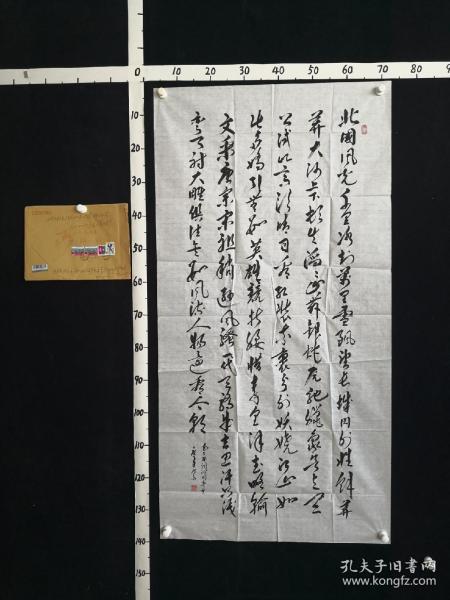 0 10 20 30 40 50 60 70 80
10
20
30
40
50
60
70
80
90
100
110
120
130
140
150
北國风光千里冰封万里雪飘望长城内外惟余莽
莽大河上下顿失滔滔山舞银蛇原驰蜡象欲与天
公试比高须晴日看红装素裹分外妖娆江山如
此多娇引无数英雄竞折腰惜秦皇汉武略输
文采唐宗宋祖稍逊风骚一代天骄成吉思汗只识
弯弓射大雕俱往矣数风流人物还看今朝
孔夫子旧书网
www.kongfz.com